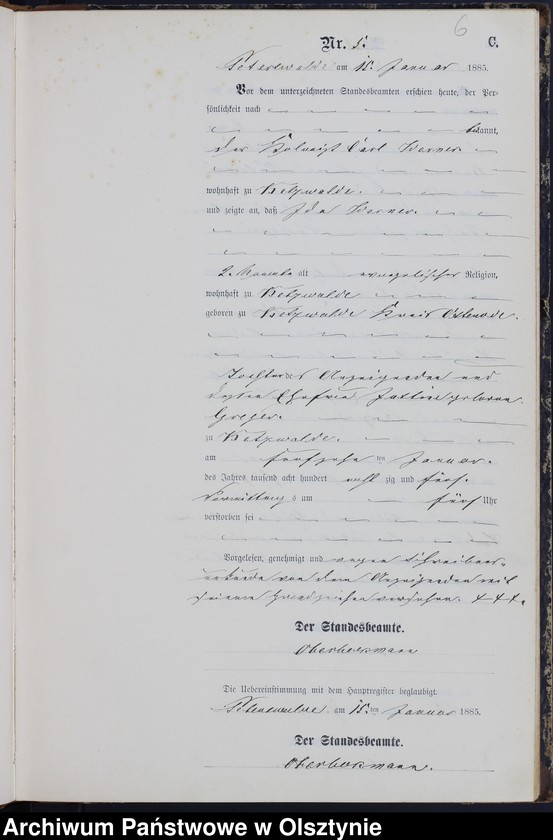 6
Nr. 5. C.
am 15. Januar 1885.
Vor dem unterzeichneten Standesbeamten erschien heute, der Per-
sönlichkeit nach
bekannt,
der Carl Werner
wohnhaft zu
und zeigte an, daß Ida Werner
2 Monate alt evangelischer Religion,
wohnhaft zu
geboren zu Kreis Osterode
Tochter des Anzeigenden und
dessen Ehefrau geborene
zu
am fünfzehnten Januar
des Jahres tausend acht hundert achtzig und fünf
Vormittags um fünf Uhr
verstorben sei
Vorgelesen, genehmigt und wegen Schreibens-
unkunde von dem Anzeigenden mit
seinem Handzeichen versehen. +++.
Der Standesbeamte.
Die Uebereinstimmung mit dem Hauptregister beglaubigt.
am 15.ten Januar 1885.
Der Standesbeamte.
Archiwum Państwowe w Olsztynie